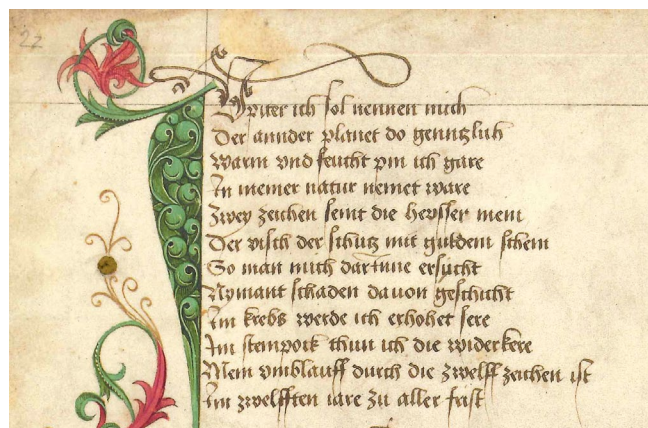 22
Jupiter ich sol nennen mich
Der annder planet do genntzlich
Warm vnd feucht pin ich gare
In meiner natur nemet ware
Zwey zeichen seint die hewsser mein
Der visch der schutz mit guldein schein
So man mich darinne ersucht
Nymant schaden dauon geschicht
Im krebs werde ich erhohet sere
Im steinpock thun ich die widerkere
Mein vmblauff durch die zwelff zeichen ist
Im zwelfften iare zu aller frist